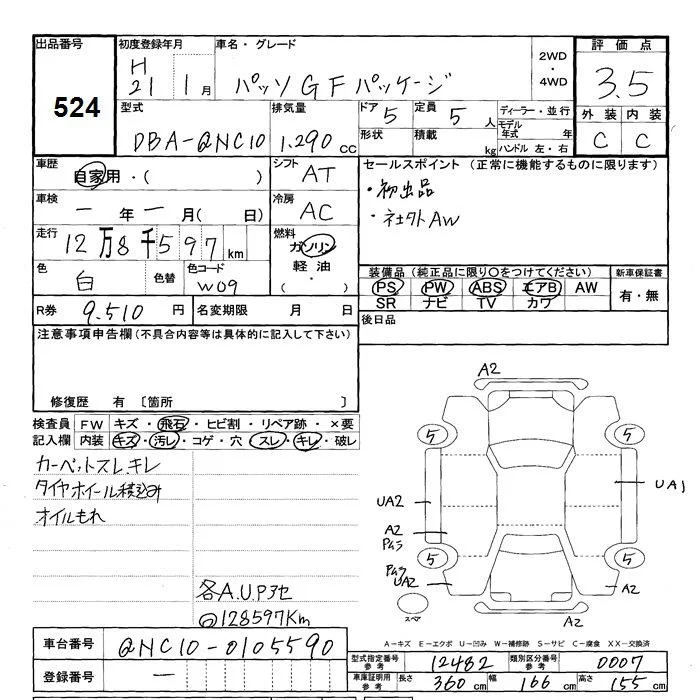 出品番号
524
初度登録年月
H
21 1月
車名・グレード
パッソ G F パッケージ
2WD
・
4WD
評価点
3.5
外装 内装
C C
型式
DBA-QNC10
排気量
1.290 cc
ドア 5
定員 5 人
形状
積載 kg
ディーラー・並行
モデル
年式 年
ハンドル 左・右
車歴
自家用・( )
シフト
AT
車検
一 年 一 月( 日)
冷房
AC
走行
12万8千597km
燃料
ガソリン
軽油・
( )
色
白
色替
色コード
W09
R券 9.510 円
名変期限 月 日
セールスポイント (正常に機能するものに限ります)
・初出品
・社外AW
装備品(純正品に限り○をつけてください)
PS PW ABS エアB AW
SR ナビ TV カワ
新車保証書
有・無
後日品
注意事項申告欄(不具合内容等は具体的に記入して下さい)
修復歴 有 〔箇所 〕
検査員 FW キズ・飛石・ヒビ割・リペア跡・×要
記入欄 内装 キズ・汚レ・コゲ・穴・スレ・キレ・破レ
カーペットスレ.キレ
タイヤホイール積込み
オイルもれ
各A.U.Pアセ
◎128597Km
A2
5 5
UA2 UA1
A2
Pムラ
5 5
Pムラ
UA2 A2
スペア
A2
A-キズ E-エクボ U-凹み W-補修跡 S-サビ C-腐食 XX-交換済
車台番号 QNC10-0105590
登録番号 一
型式指定番号
参考
12482
類別区分番号
参考
0007
車庫証明用
参考
長さ 360 cm 幅 166 cm 高さ 155 cm